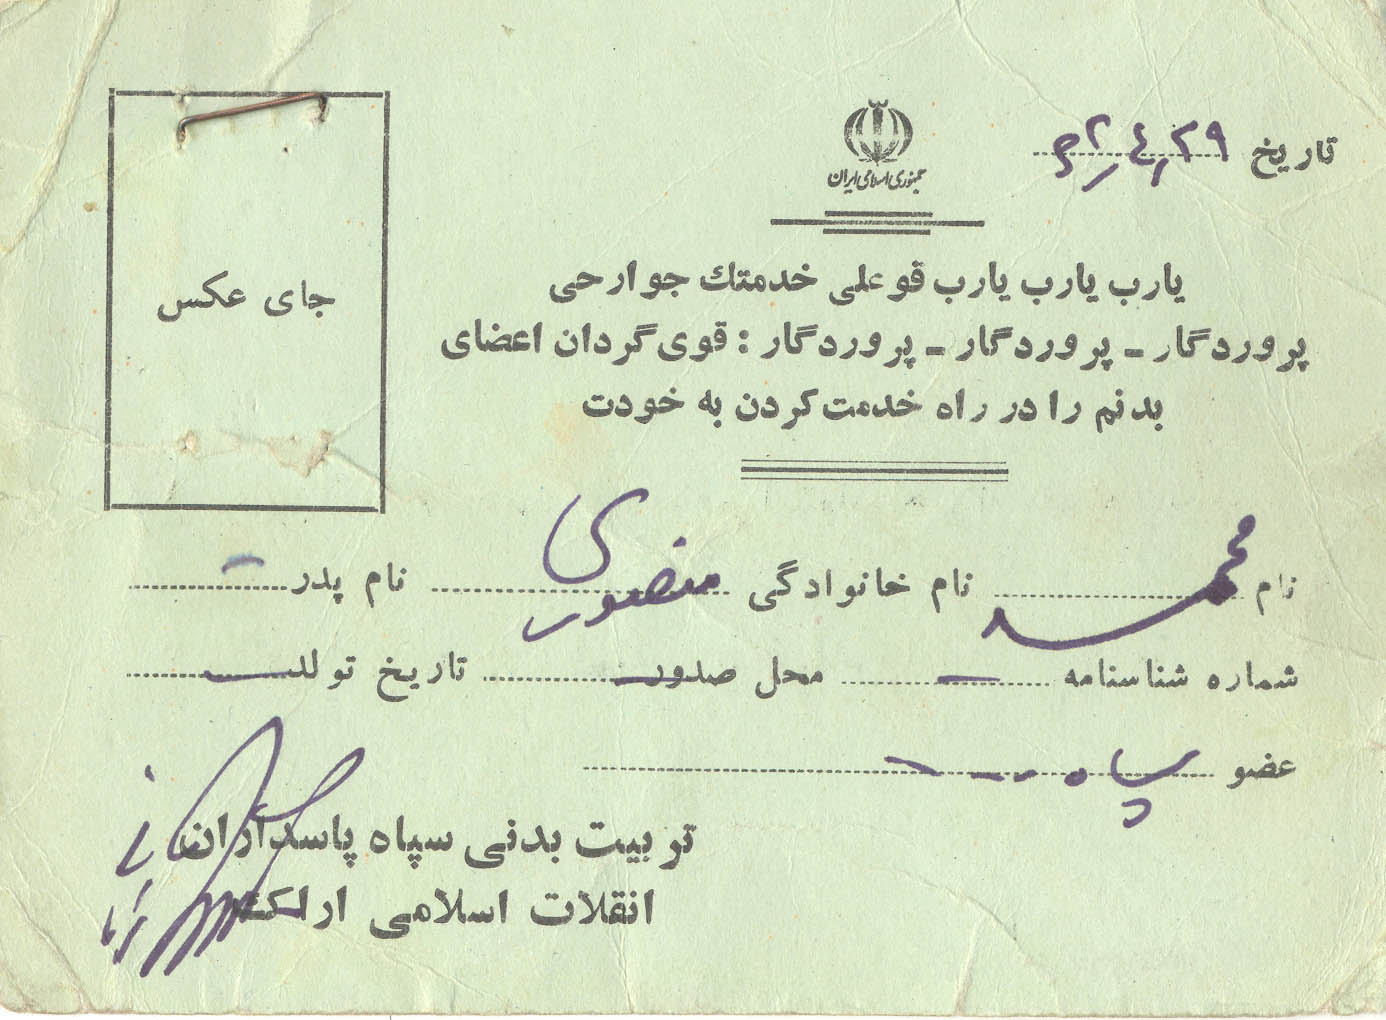 تاریخ ۲۹ ر ٤ ر ۶۲
جمهوری اسلامی ایران
یارب یارب یارب قو علی خدمتك جوارحی
پروردگار ـ پروردگار ـ پروردگار : قوی گردان اعضای
بدنم را در راه خدمت کردن به خودت
جای عکس
نام محمد نام خانوادگی منصوری نام پدر
شماره شناسنامه ــ محل صدور ــ تاریخ تولد ــ
عضو سپاه
تربیت بدنی سپاه پاسداران
انقلات اسلامی اراک